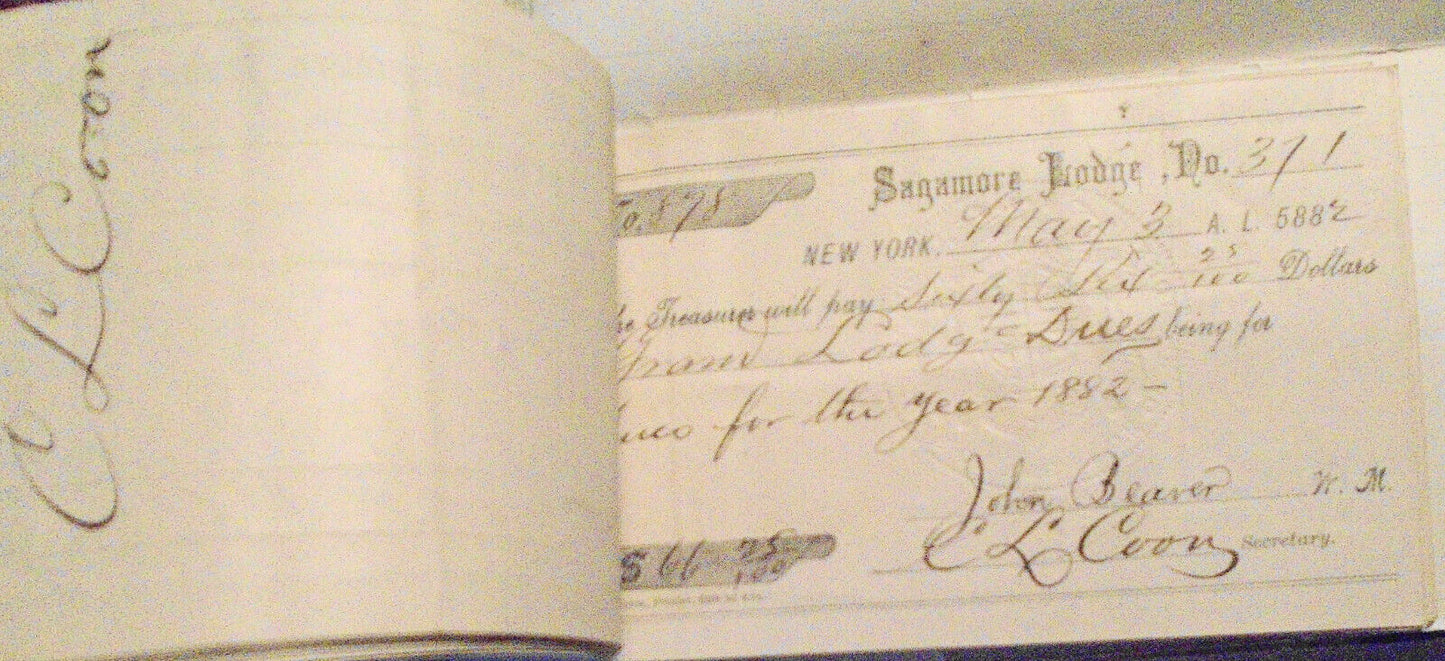 C L Coon
Sagamore Lodge, No. 371
No. 878
NEW YORK, May 3 A. L. 5882
he Treasurer will pay Sixty Six 25/100 Dollars
Gran Lodg Dues being for
ues for the year 1882 –
John Beaver W. M.
C L Coon Secretary.
$ 66 25/100